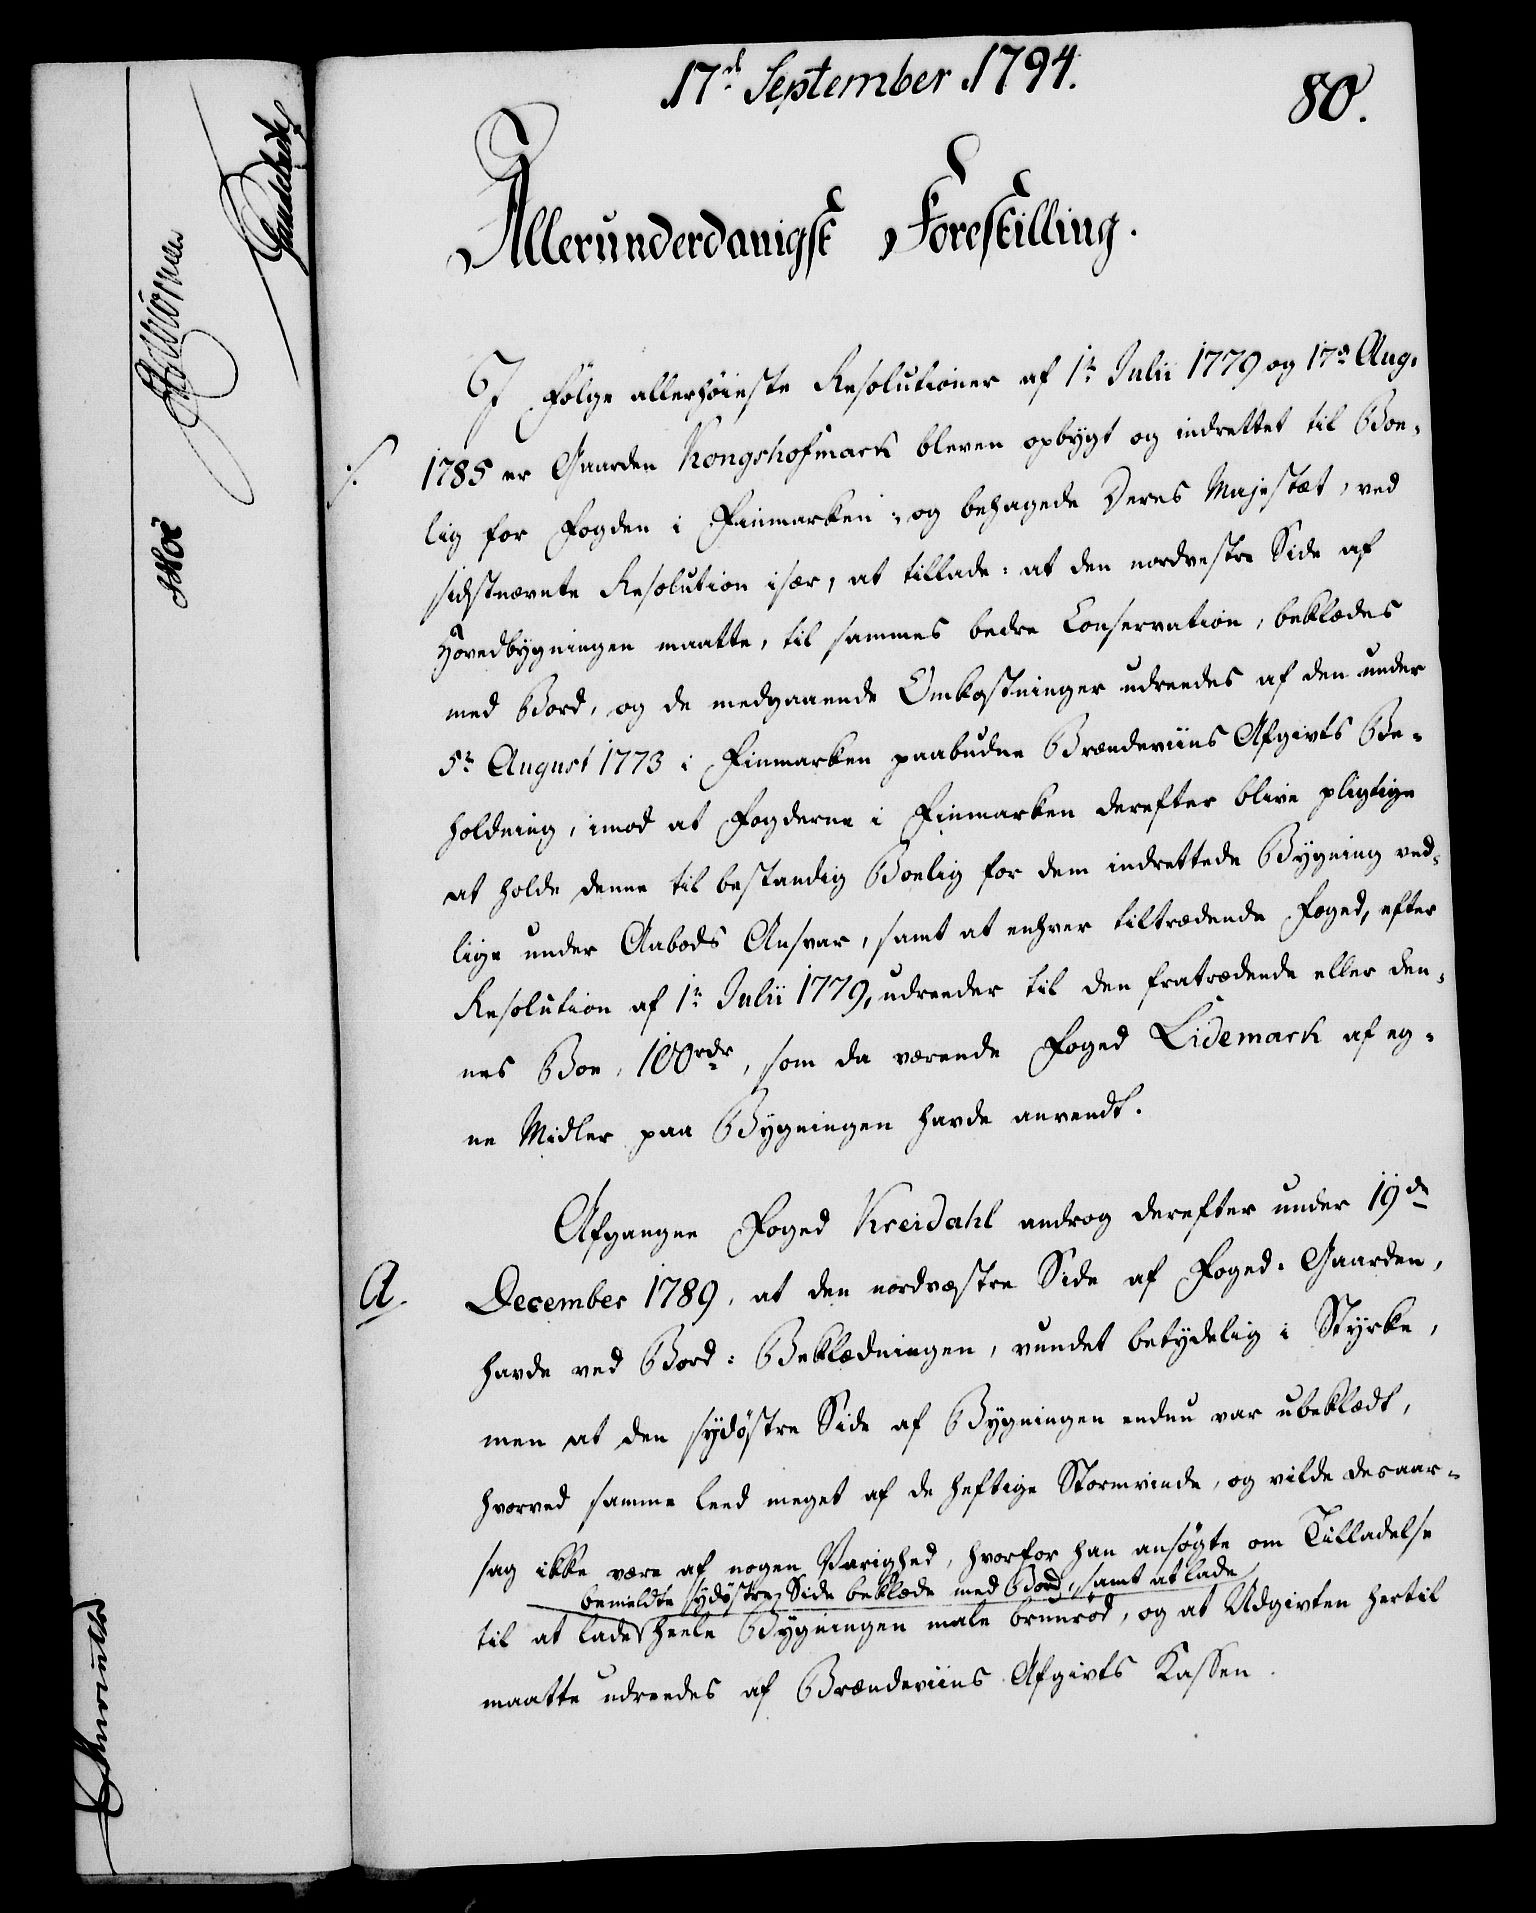 17d September 1794.
80.
Allerunderdanigst Forestilling.
I Følge allerhøieste Resolutioner af 1te Julii 1779 og 17de Aug.
1785 er Gaarden Kongshofmark bleven opbygt og indrettet til Boe-
lig for Fogden i Finmarken; og behagede Deres Majestæt, ved
sidstnævnte Resolution især, at tillade: at den nordvestre Side af
Hovedbygningen maatte, til sammes bedre Conservation, beklædes
med Bord, og de medgaaende Omkostninger udreedes af den under
5te August 1773 i Finmarken paabudne Brændeviins Afgivts Be-
holdning, imod at Fogderne i Finmarken derefter blive pligtige
at holde denne til bestandig Boelig for dem indrettede Bygning ved-
lige under Aabods Ansvar, samt at enhver tiltrædende Foged, efter
Resolution af 1te Julii 1779, udreeder til den fratrædende eller den-
nes Boe, 100rdr, som da værende Foged Lidemark af eg-
ne Midler paa Bygningen havde anvendt.
Afgangne Foged Kreidahl androg derefter under 19de
A.
December 1789, at den nordvestre Side af Foged-Gaarden,
havde ved Bord-Beklædningen, vundet betydelig i Styrke,
men at den sydøstre Side af Bygningen endnu var ubeklædt,
hvorved samme leed meget af de heftige Stormvinde, og vilde desaar-
sag ikke være af nogen Varighed, hvorfor han ansøgte om Tilladelse
bemeldte sydøstre Side beklæde med Bord, samt at lade
til at lade heele Bygningen male brunrød, og at Udgivten hertil
maatte udreedes af Brændeviins Afgivts Kassen.